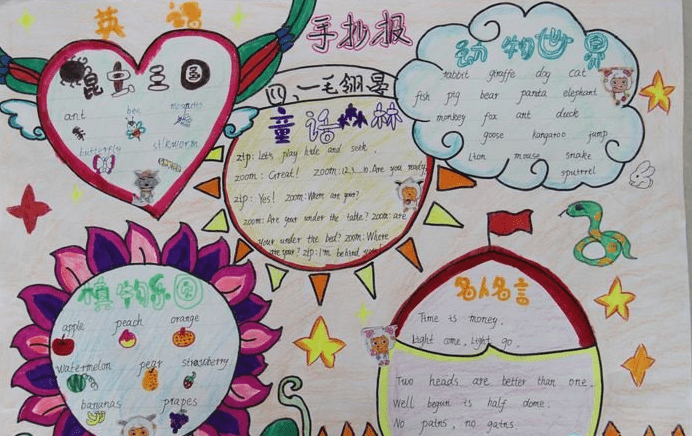 英语
手抄报
昆虫王国
ant bee mosquito
butterfly silkworm
一毛
童话森林
zip: Let's play hide and seek.
zoom: Great! zoom: 1.2.3...10. Are you ready
zip: Yes! zoom: Where are you?
zoom: Are your under the table? zoom: are
your under the bed? zoom: Where
are your? zip: I'm behind
动物世界
rabbit giraffe dog cat
fish pig bear panta elephant
monkey fox ant duck
goose kangaroo jump
Lion mouse snake
squirrel
植物乐园
apple peach orange
watermelon pear strawberry
bananas grapes
名人名言
Time is money.
Light come, Light go.
Two heads are better than one.
Well begun is half dome.
No pains, no gains